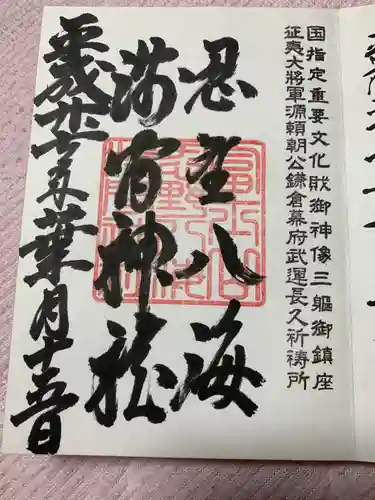 国指定重要文化財御神像三軀御鎮座
征夷大將軍源頼朝公鎌倉幕府武運長久祈禱所
忍野八海
浅間神社
平成廿五年葉月十日